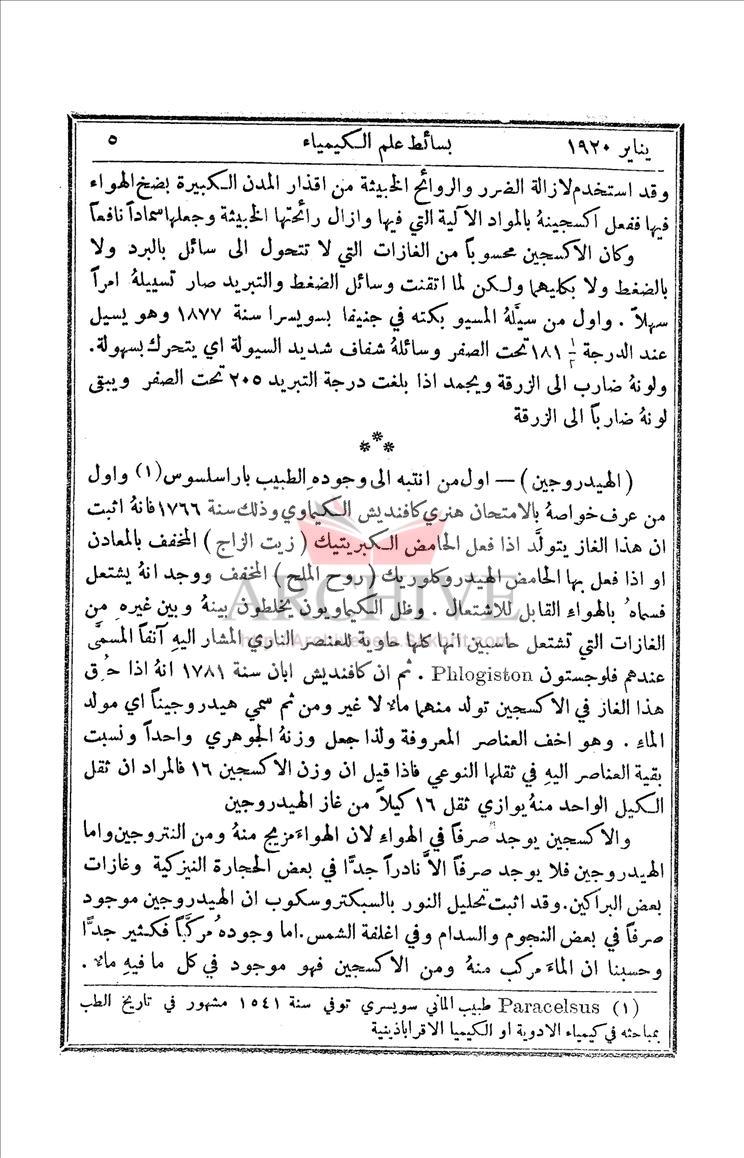 يناير ١٩٢٠ بسائط علم الكيمياء ٥
وقد استخدم لازالة الضرر والروائح الخبيثة من اقذار المدن الكبيرة بضخ الهواء
فيها ففعل اكسجينهُ بالمواد الآلية التي فيها وازال رائحتها الخبيثة وجعلها سماداً نافعاً
وكان الاكسجين محسوباً من الغازات التي لا تتحول الى سائل بالبرد ولا
بالضغط ولا بكليهما ولكن لما اتقنت وسائل الضغط والتبريد صار تسييلهُ امراً
سهلاً . واول من سيَّلهُ المسيو بكته في جنيفا بسويسرا سنة ١٨٧٧ وهو يسيل
عند الدرجة ١/٢ ١٨١ تحت الصفر وسائلهُ شفاف شديد السيولة اي يتحرك بسهولة.
ولونهُ ضارب الى الزرقة ويجمد اذا بلغت درجة التبريد ٢٠٥ تحت الصفر ويبقى
لونهُ ضارباً الى الزرقة
***
(الهيدروجين) — اول من انتبه الى وجوده الطبيب باراسلسوس (١) واول
من عرف خواصهُ بالامتحان هنري كافنديش الكيماوي وذلك سنة ١٧٦٦ فانهُ اثبت
ان هذا الغاز يتولَّد اذا فعل الحامض الكبريتيك ( زيت الزاج ) المخفف بالمعادن
او اذا فعل بها الحامض الهيدروكلوريك ( روح الملح ) المخفف ووجد انهُ يشتعل
فسماهُ بالهواء القابل للاشتعال . وظل الكيماويون يخلطون بينهُ وبين غيره من
الغازات التي تشتعل حاسبين انها كلها حاوية للعنصر الناري المشار اليهِ آنفاً المسمَّى
عندهم فلوجستون Phlogiston . ثم ان كافنديش ابان سنة ١٧٨١ انهُ اذا حُرِق
هذا الغاز في الاكسجين تولد منهما ماء لا غير ومن ثم سمي هيدروجيناً اي مولد
الماء . وهو اخف العناصر المعروفة ولذا جعل وزنهُ الجوهري واحداً ونسبت
بقية العناصر اليهِ في ثقلها النوعي فاذا قيل ان وزن الاكسجين ١٦ فالمراد ان ثقل
الكيل الواحد منهُ يوازي ثقل ١٦ كيلاً من غاز الهيدروجين
والاكسجين يوجد صرفاً في الهواء لان الهواء مزيج منهُ ومن النتروجين واما
الهيدروجين فلا يوجد صرفاً الاَّ نادراً جدًّا في بعض الحجارة النيزكية وغازات
بعض البراكين. وقد اثبت تحليل النور بالسبكتروسكوب ان الهيدروجين موجود
صرفاً في بعض النجوم والسدام وفي اغلفة الشمس. اما وجودهُ مركَّباً فكثير جدًّا
وحسبنا ان الماء مركب منهُ ومن الاكسجين فهو موجود في كل ما فيهِ ماء .
(١) Paracelsus طبيب الماني سويسري توفي سنة ١٥٤١ مشهور في تاريخ الطب
بمباحثه في كيمياء الادوية او الكيميا الاقراباذينية
ARCHIVE